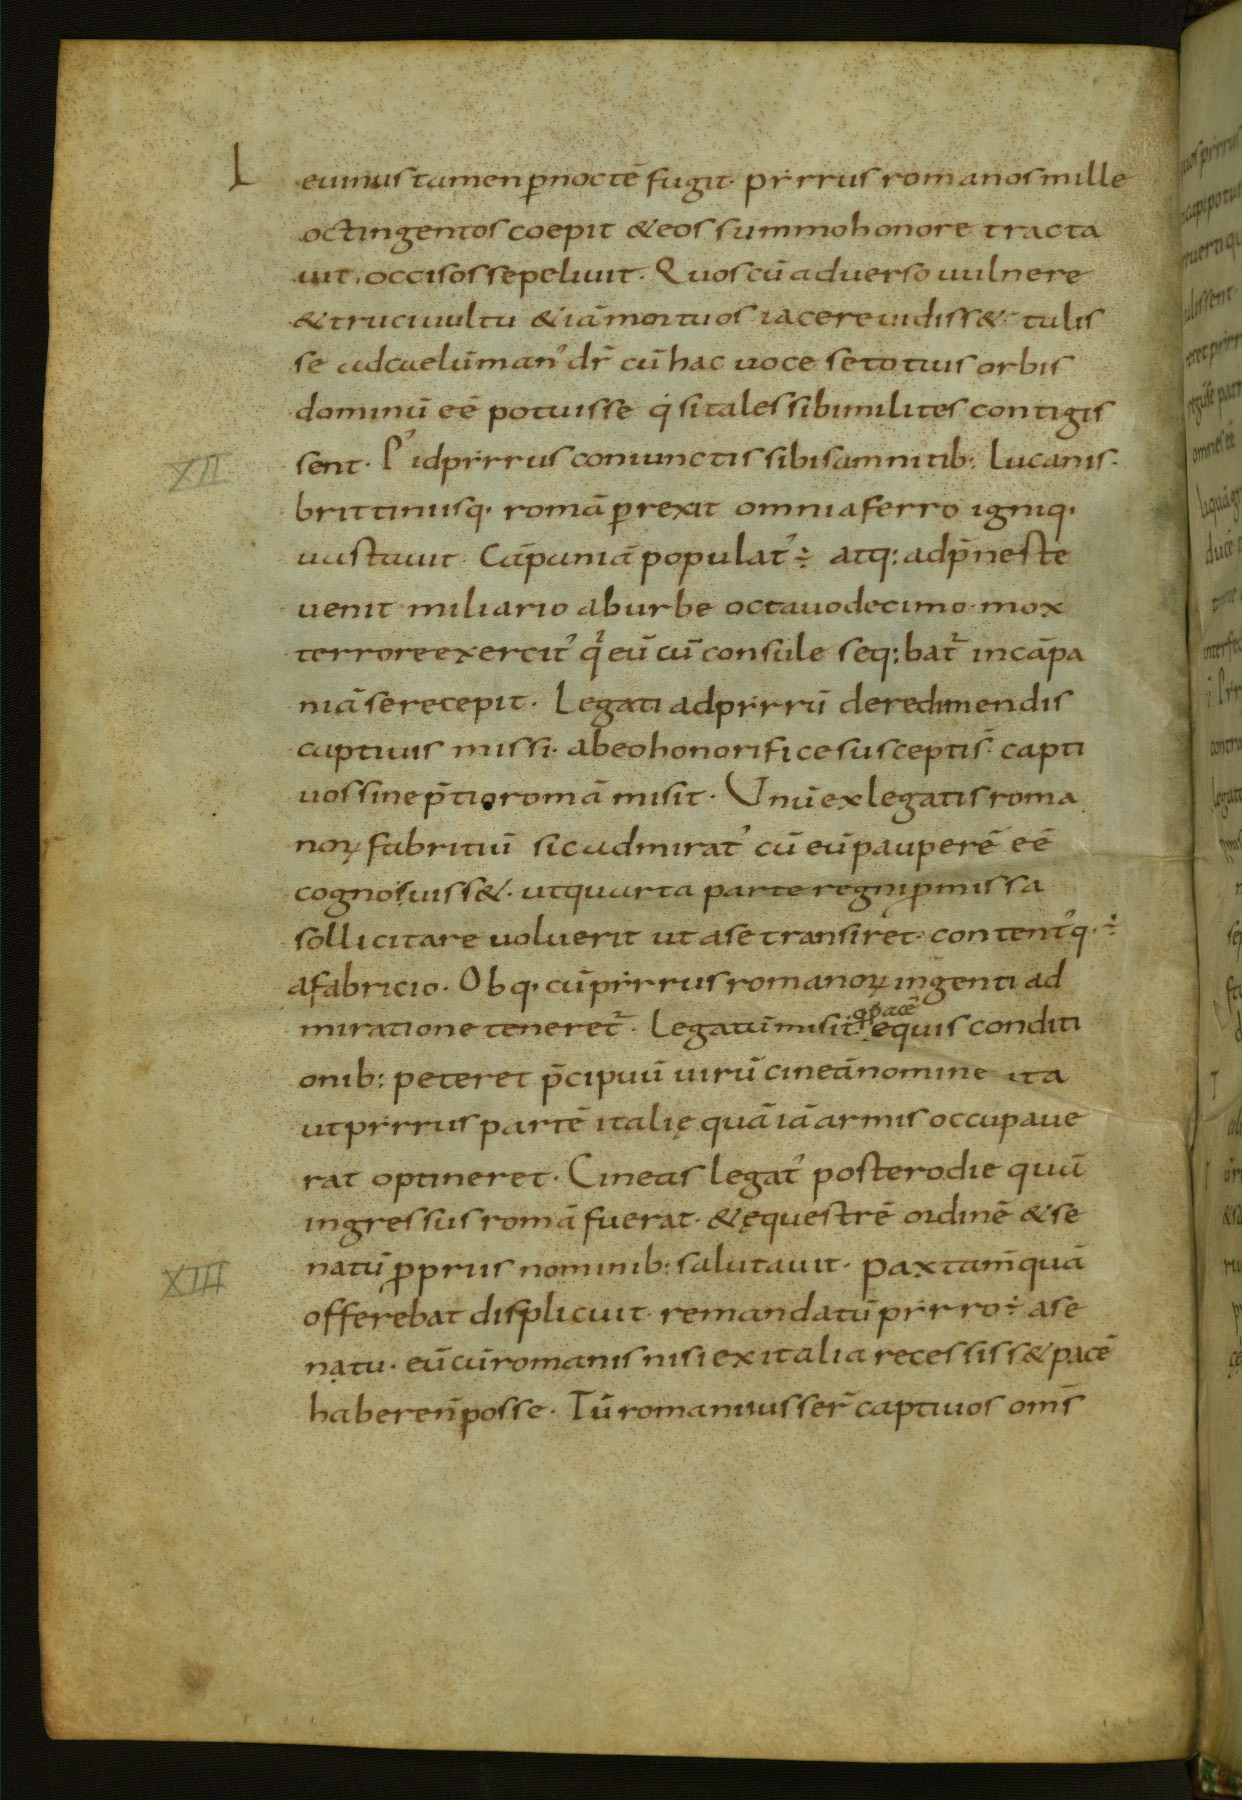 Leuinus tamen p̄ noctē fugit · pẏrrus romanos mille
octingentos coepit & eos summo honore tracta
uit, occisos sepeliuit · Quos cū aduerso uulnere
& truci uultu & iā mortuos iacere uidiss& · tulis
se ad caelū man᾽ dr̄ cū hac uoce se totius orbis
dominū eē potuisse q̇ si tales sibi milites contigis
sent · P᾽ id pẏrrus coniunctis sibi samnitib: Lucanis ·
XII
brittiisq· romā ꝑrexit omnia ferro igniq·
uastauit · Cāpaniā populat᾽ ÷ atq: ad p̄neste
uenit miliario ab urbe octauodecimo · mox
terrore exercit᾽ q̇ eū cū consule seq:bat᷑ in cāpa
niā se recepit · Legati ad pẏrrū de redimendis
captiuis missi · ab eo honorifice susceptis · capti
uos sine p̄tio romā misit · Vnū ex legatis roma
noꝝ fabritiū sic admirat᾽ cū eū pauperē eē
cognouiss& · ut quarta parte regni ꝓmissa
sollicitare uoluerit ut a se transiret · content᾽q· ÷
a fabricio · Obq· cū pẏrrus romanoꝝ ingenti ad
miratione teneret᷑ · Legatū misit q̇ pacē equis conditi
onib: peteret p̄cipuū uirū cineā nomine ita
ut pẏrrus partē italię quā iā armis occupaue
rat optineret · Cineas legat᾽ postero die quā
ingressus romā fuerat · & equestrē ordinē & se
natū ꝓpriis nominib: salutauit · pax tam̄ quā
XIII
offerebat displicuit · remandatū pẏrro ÷ a se
natu · eū cū romanis nisi ex italia recessiss& pacē
habere n̄ posse · Tū romani iusser̄ captiuos om̄s